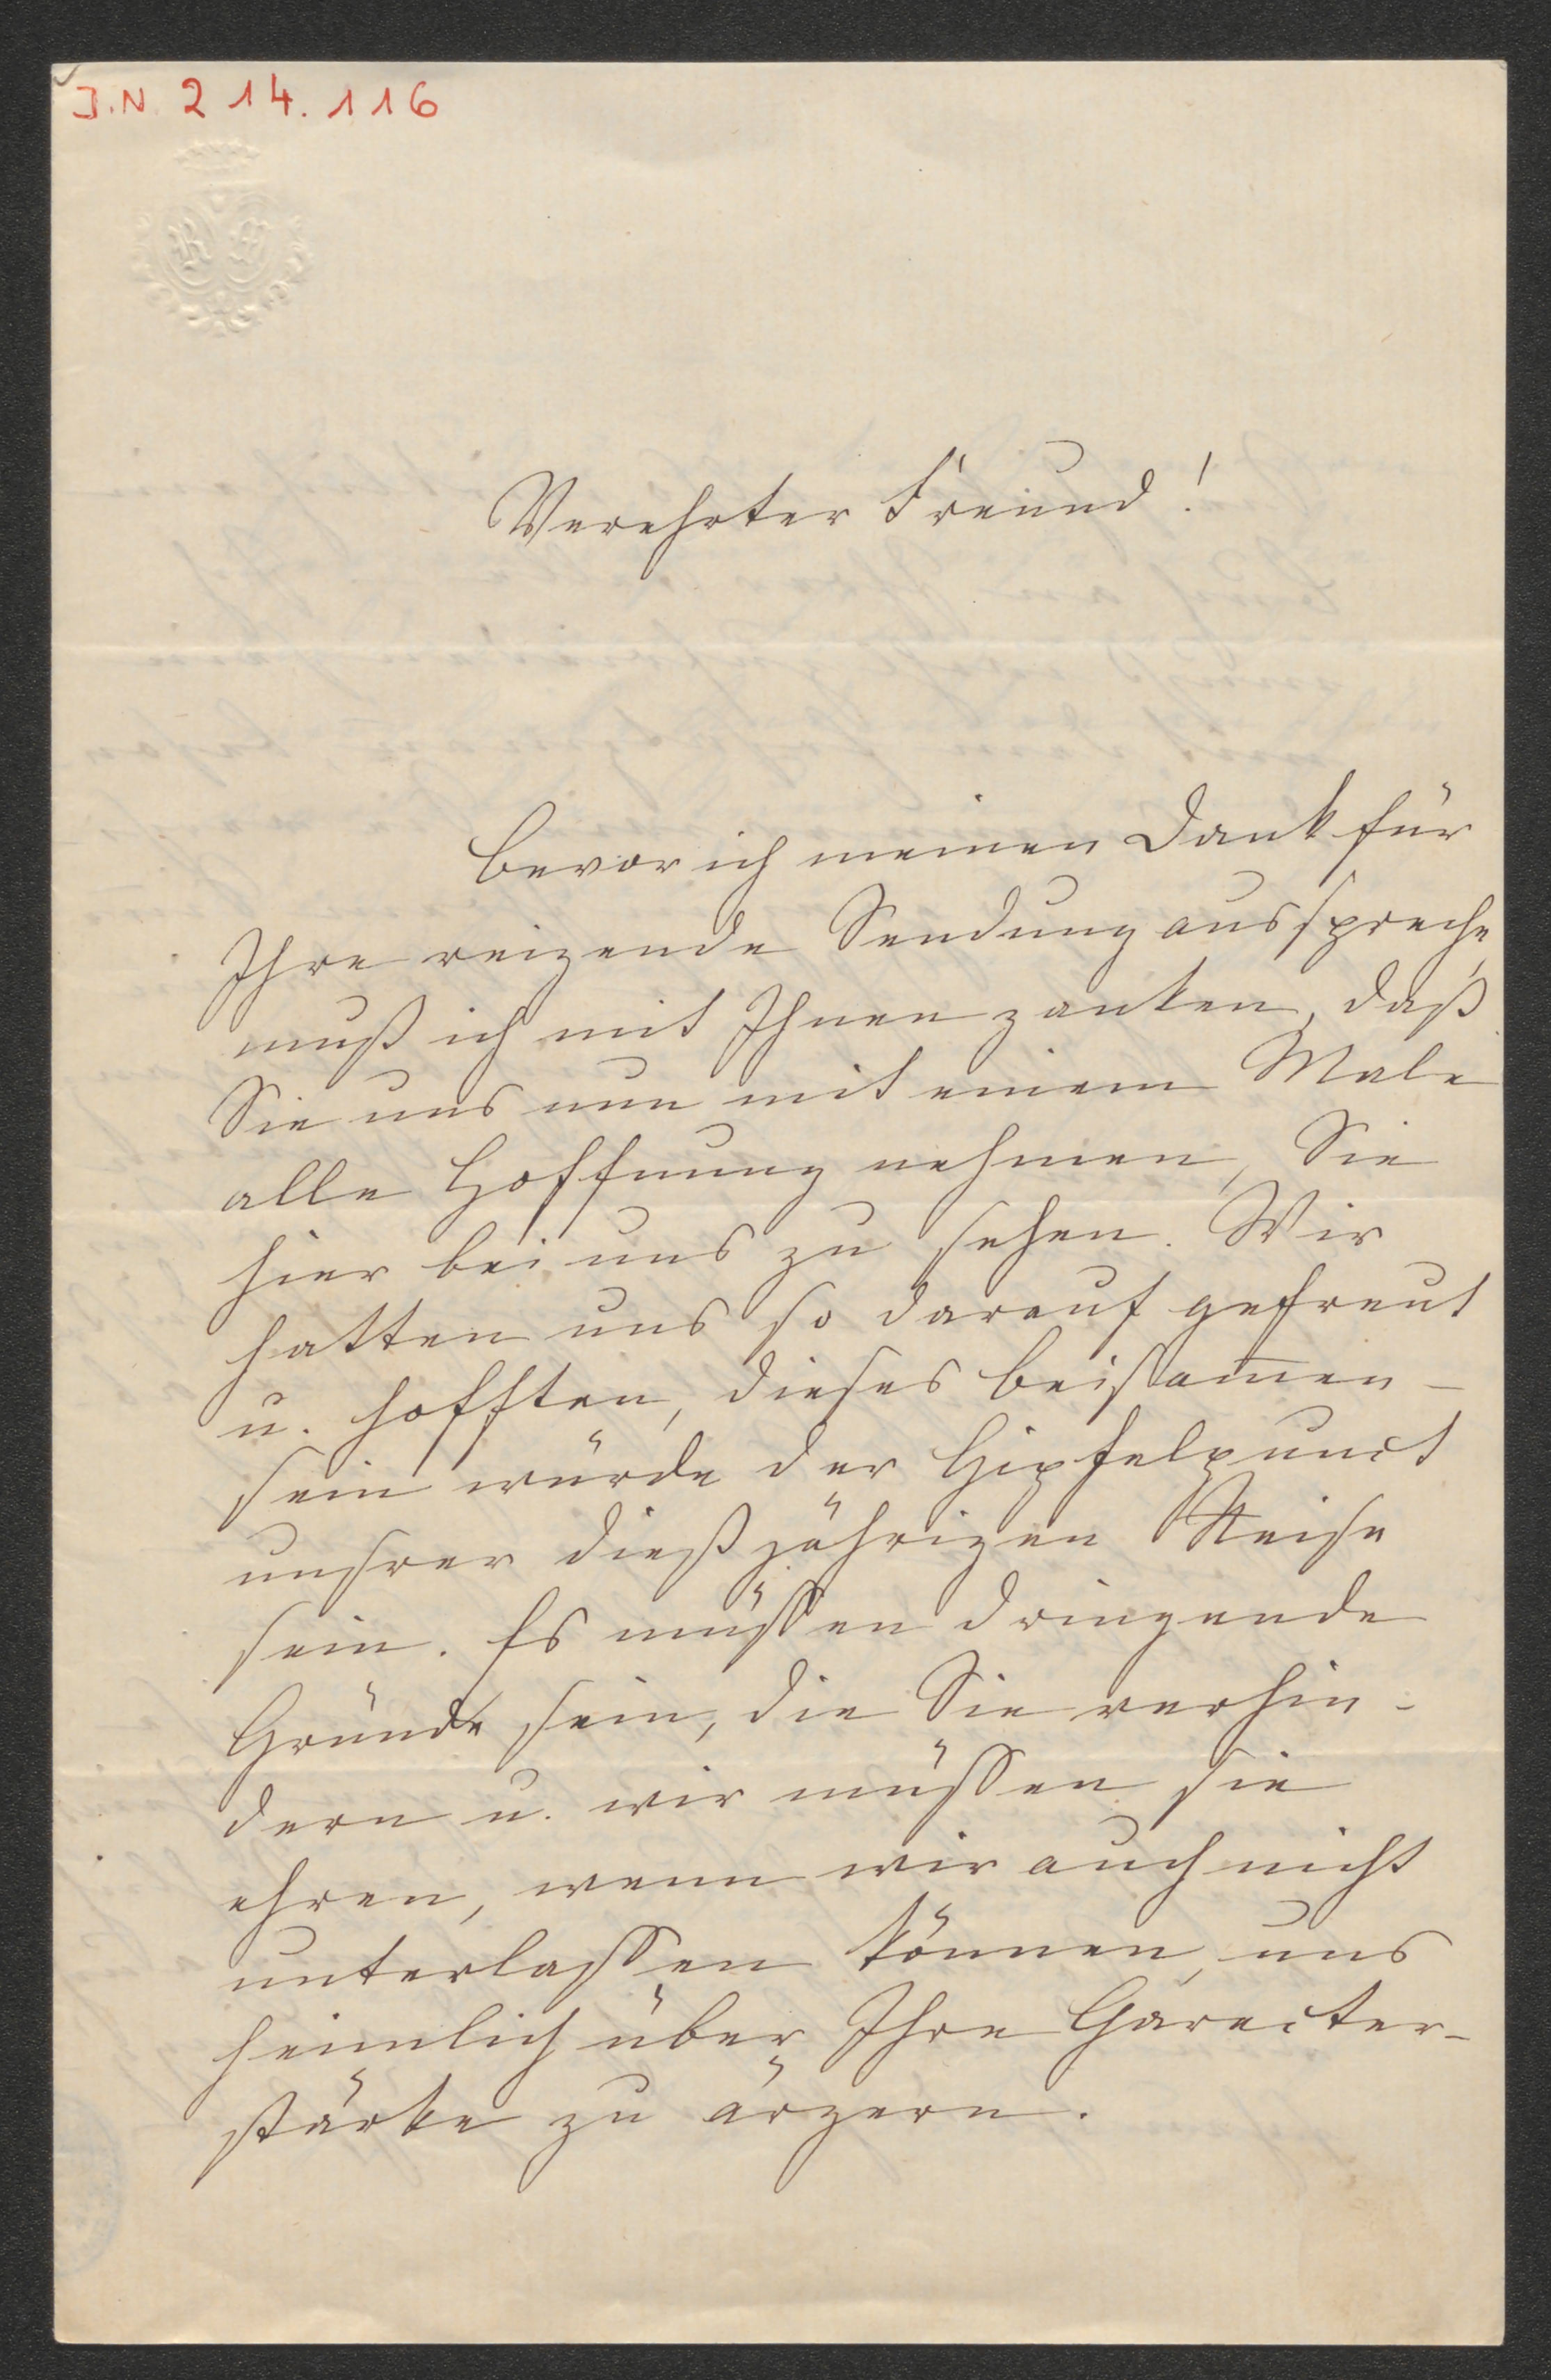 I.N. 214.116
Verehrter Freund!
Bevor ich meinen Dank für
Ihre reizende Sendung ausspreche,
muß ich mit Ihnen zanken, daß
Sie uns nun mit einem Male
alle Hoffnung nehmen, Sie
hier bei uns zu sehen. Wir
hatten uns so darauf gefreut
u. hofften, dieses Beisam̄en-
sein würde der Gipfelpunct
unsrer dießjährigen Reise
sein. Es müssen dringende
Gründe sein, die Sie verhin-
dern u. wir müssen sie
ehren, wenn wir auch nicht
unterlassen können, uns
heimlich über Ihre Charecter-
stärke zu ärgern.